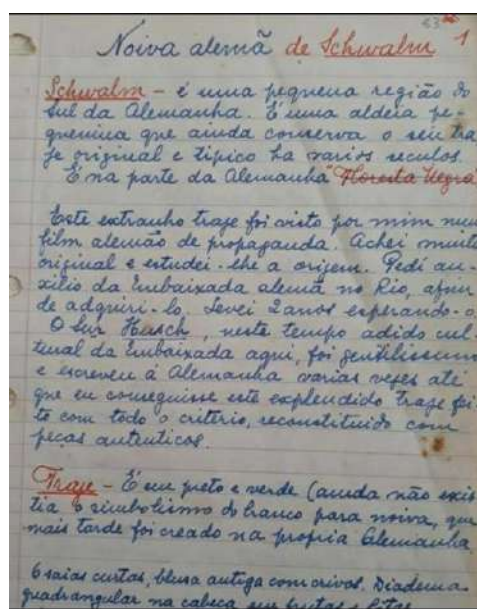 83 1
Noiva alemã de Schwalm
Schwalm - é uma pequena região do
sul da Alemanha. É uma aldeia pe-
quenina que ainda conserva o seu tra
je original e tipico ha varios seculos.
É na parte da Alemanha "Floresta Negra"
Este extranho traje foi visto por mim num
film alemão de propaganda. Achei muito
original e estudei-lhe a origem. Pedi au-
xilio da Embaixada alemã no Rio, afim
de adquiri-lo. Levei 2 anos esperando-o
O Snr Hasch, neste tempo adido cul-
tural da Embaixada aqui, foi gentilissimo
e escreveu á Alemanha varias vezes até
que eu conseguisse este explendido traje fei-
to com todo o critério, reconstituido com
peças autenticas.
Traje - É em preto e verde (ainda não exis
tia o simbolismo do branco para noiva, que
mais tarde foi creado na propria Alemanha
6 saias curtas, blusa antiga com crivos. Diadema
quadrangular na cabeça